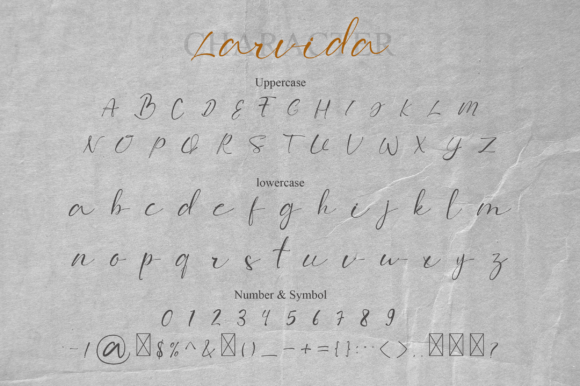 CHARACTER
Larvida
Uppercase
A B C D E F G H I J K L M
N O P Q R S T U V W X Y Z
lowercase
a b c d e f g h i j k l m
n o p q r s t u v w x y z
Number & Symbol
0 1 2 3 4 5 6 7 8 9
@ $ % ^ & ( ) _ - + = { } : < > . . ?